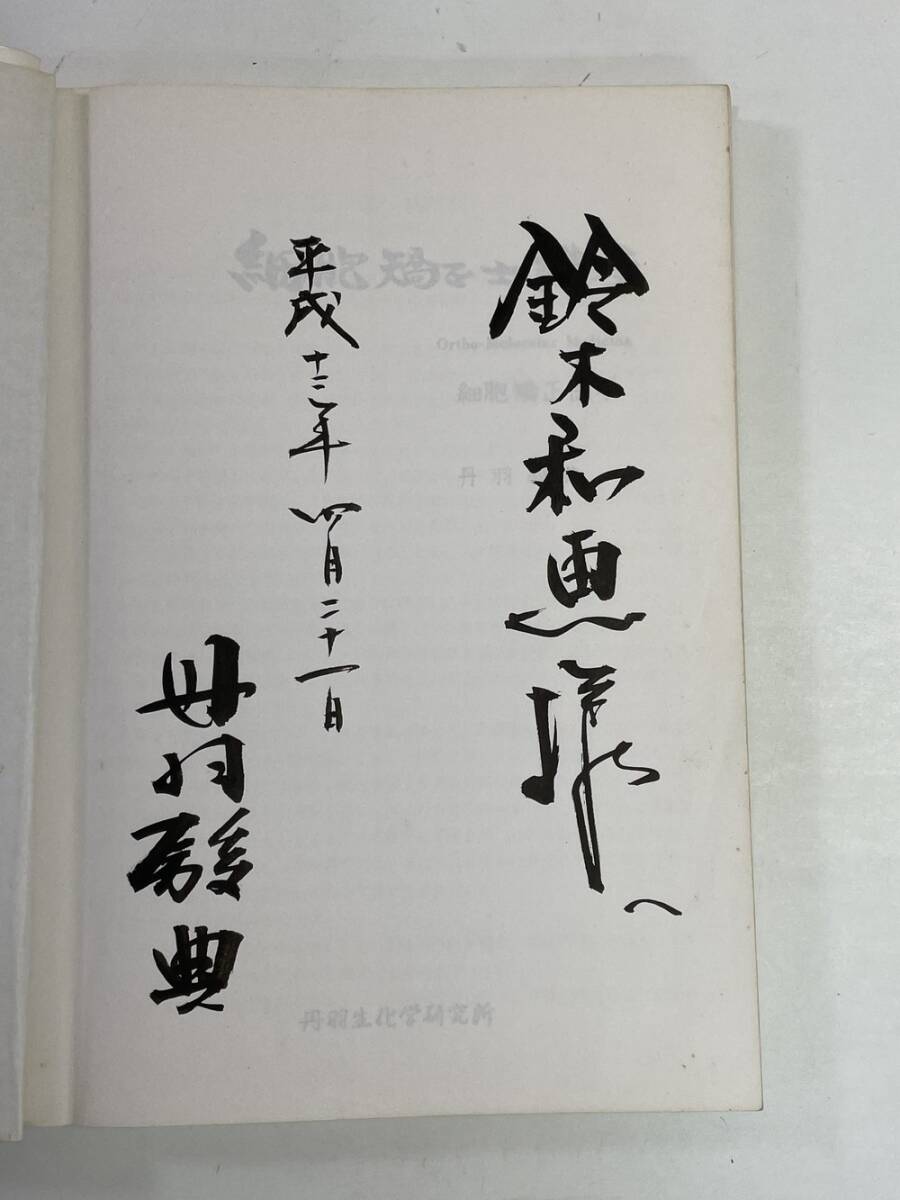 鈴木和恵様へ
平成十三年四月二十一日
丹羽典
細胞矯正
Ortho-Molecular Medicine
細胞矯正
丹羽
丹羽生化学研究所